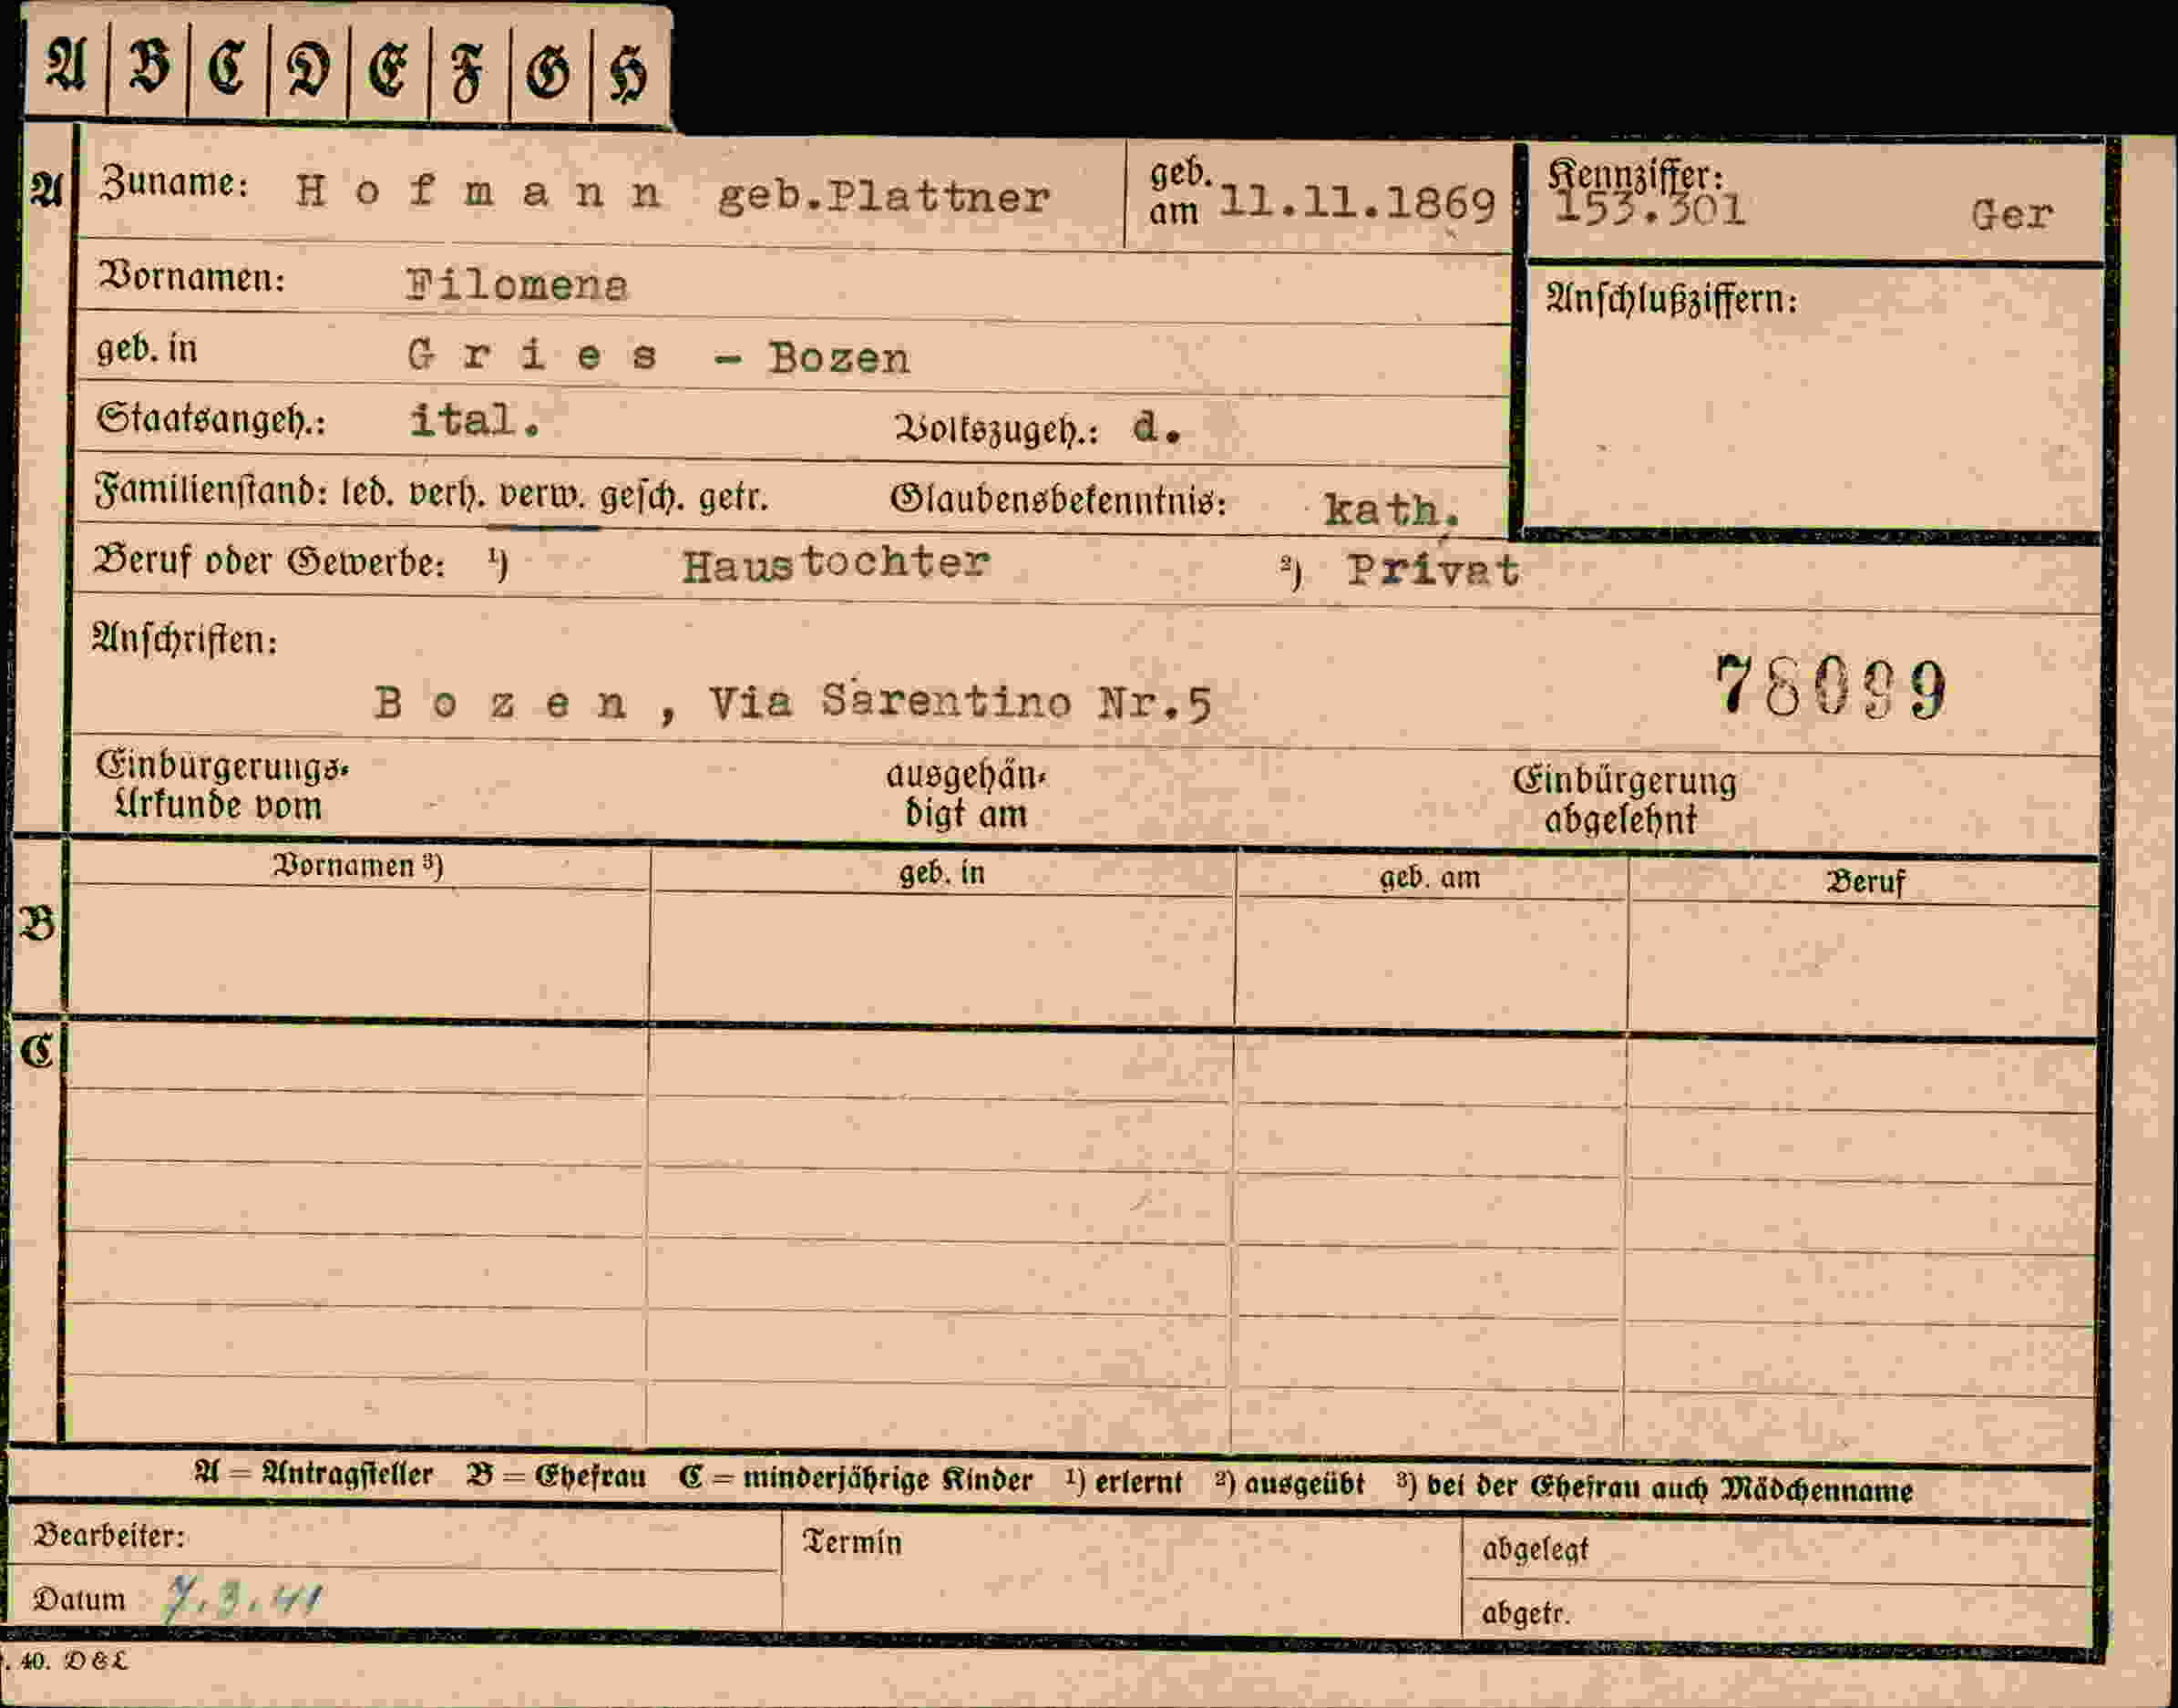 A B C D E F G H
A Zuname: Hofmann geb.Plattner geb. am 11.11.1869 Kennziffer: 153.301 Ger
Vornamen: Filomena Anschlußziffern:
geb. in Gries - Bozen
Staatsangeh.: ital. Volkszugeh.: d.
Familienstand: led. verh. verw. gesch. getr. Glaubensbekenntnis: kath.
Beruf oder Gewerbe: ¹) Haustochter ²) Privat
Anschriften:
Bozen, Via Sarentino Nr.5 78099
Einbürgerungs-Urkunde vom ausgehändigt am Einbürgerung abgelehnt
Vornamen ³) geb. in geb. am Beruf
B
C
A = Antragsteller B = Ehefrau C = minderjährige Kinder ¹) erlernt ²) ausgeübt ³) bei der Ehefrau auch Mädchenname
Bearbeiter: Termin abgelegt
Datum 7.3.41 abgetr.
. 40. D & L